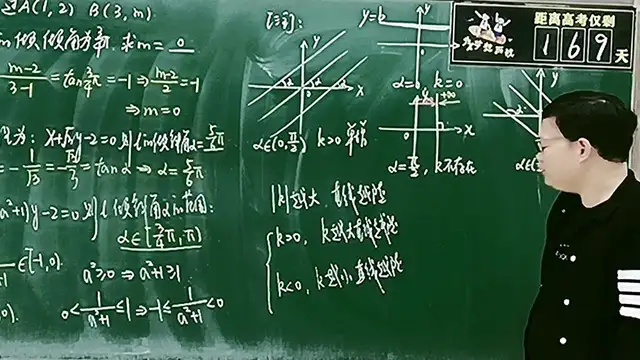 过A(1,2) B(3,m)
倾斜角为 求m=0
m-2/3-1=tan3/4π=-1⇒m-2/2=-1
⇒m=0
为:x+√3y-2=0则l的倾斜角α=5/6π
-1/√3=-√3/3=tanα⇒α=5/6π
a²+1)y-2=0则l倾斜角α的范围:
α∈[3/4π,π)
∈[-1,0).
a²≥0⇒a²+1≥1
0<1/a²+1≤1⇒-1≤-1/a²+1<0
y
x
0
α∈(0,π/2) k>0
y=b
α=0 k=0
+∞
0
x
α=π/2, k不存在
y
α∈(
|k|越大,直线越陡
k>0, k越大直线越陡
k<0, k越小,直线越陡
距离高考仅剩
169天